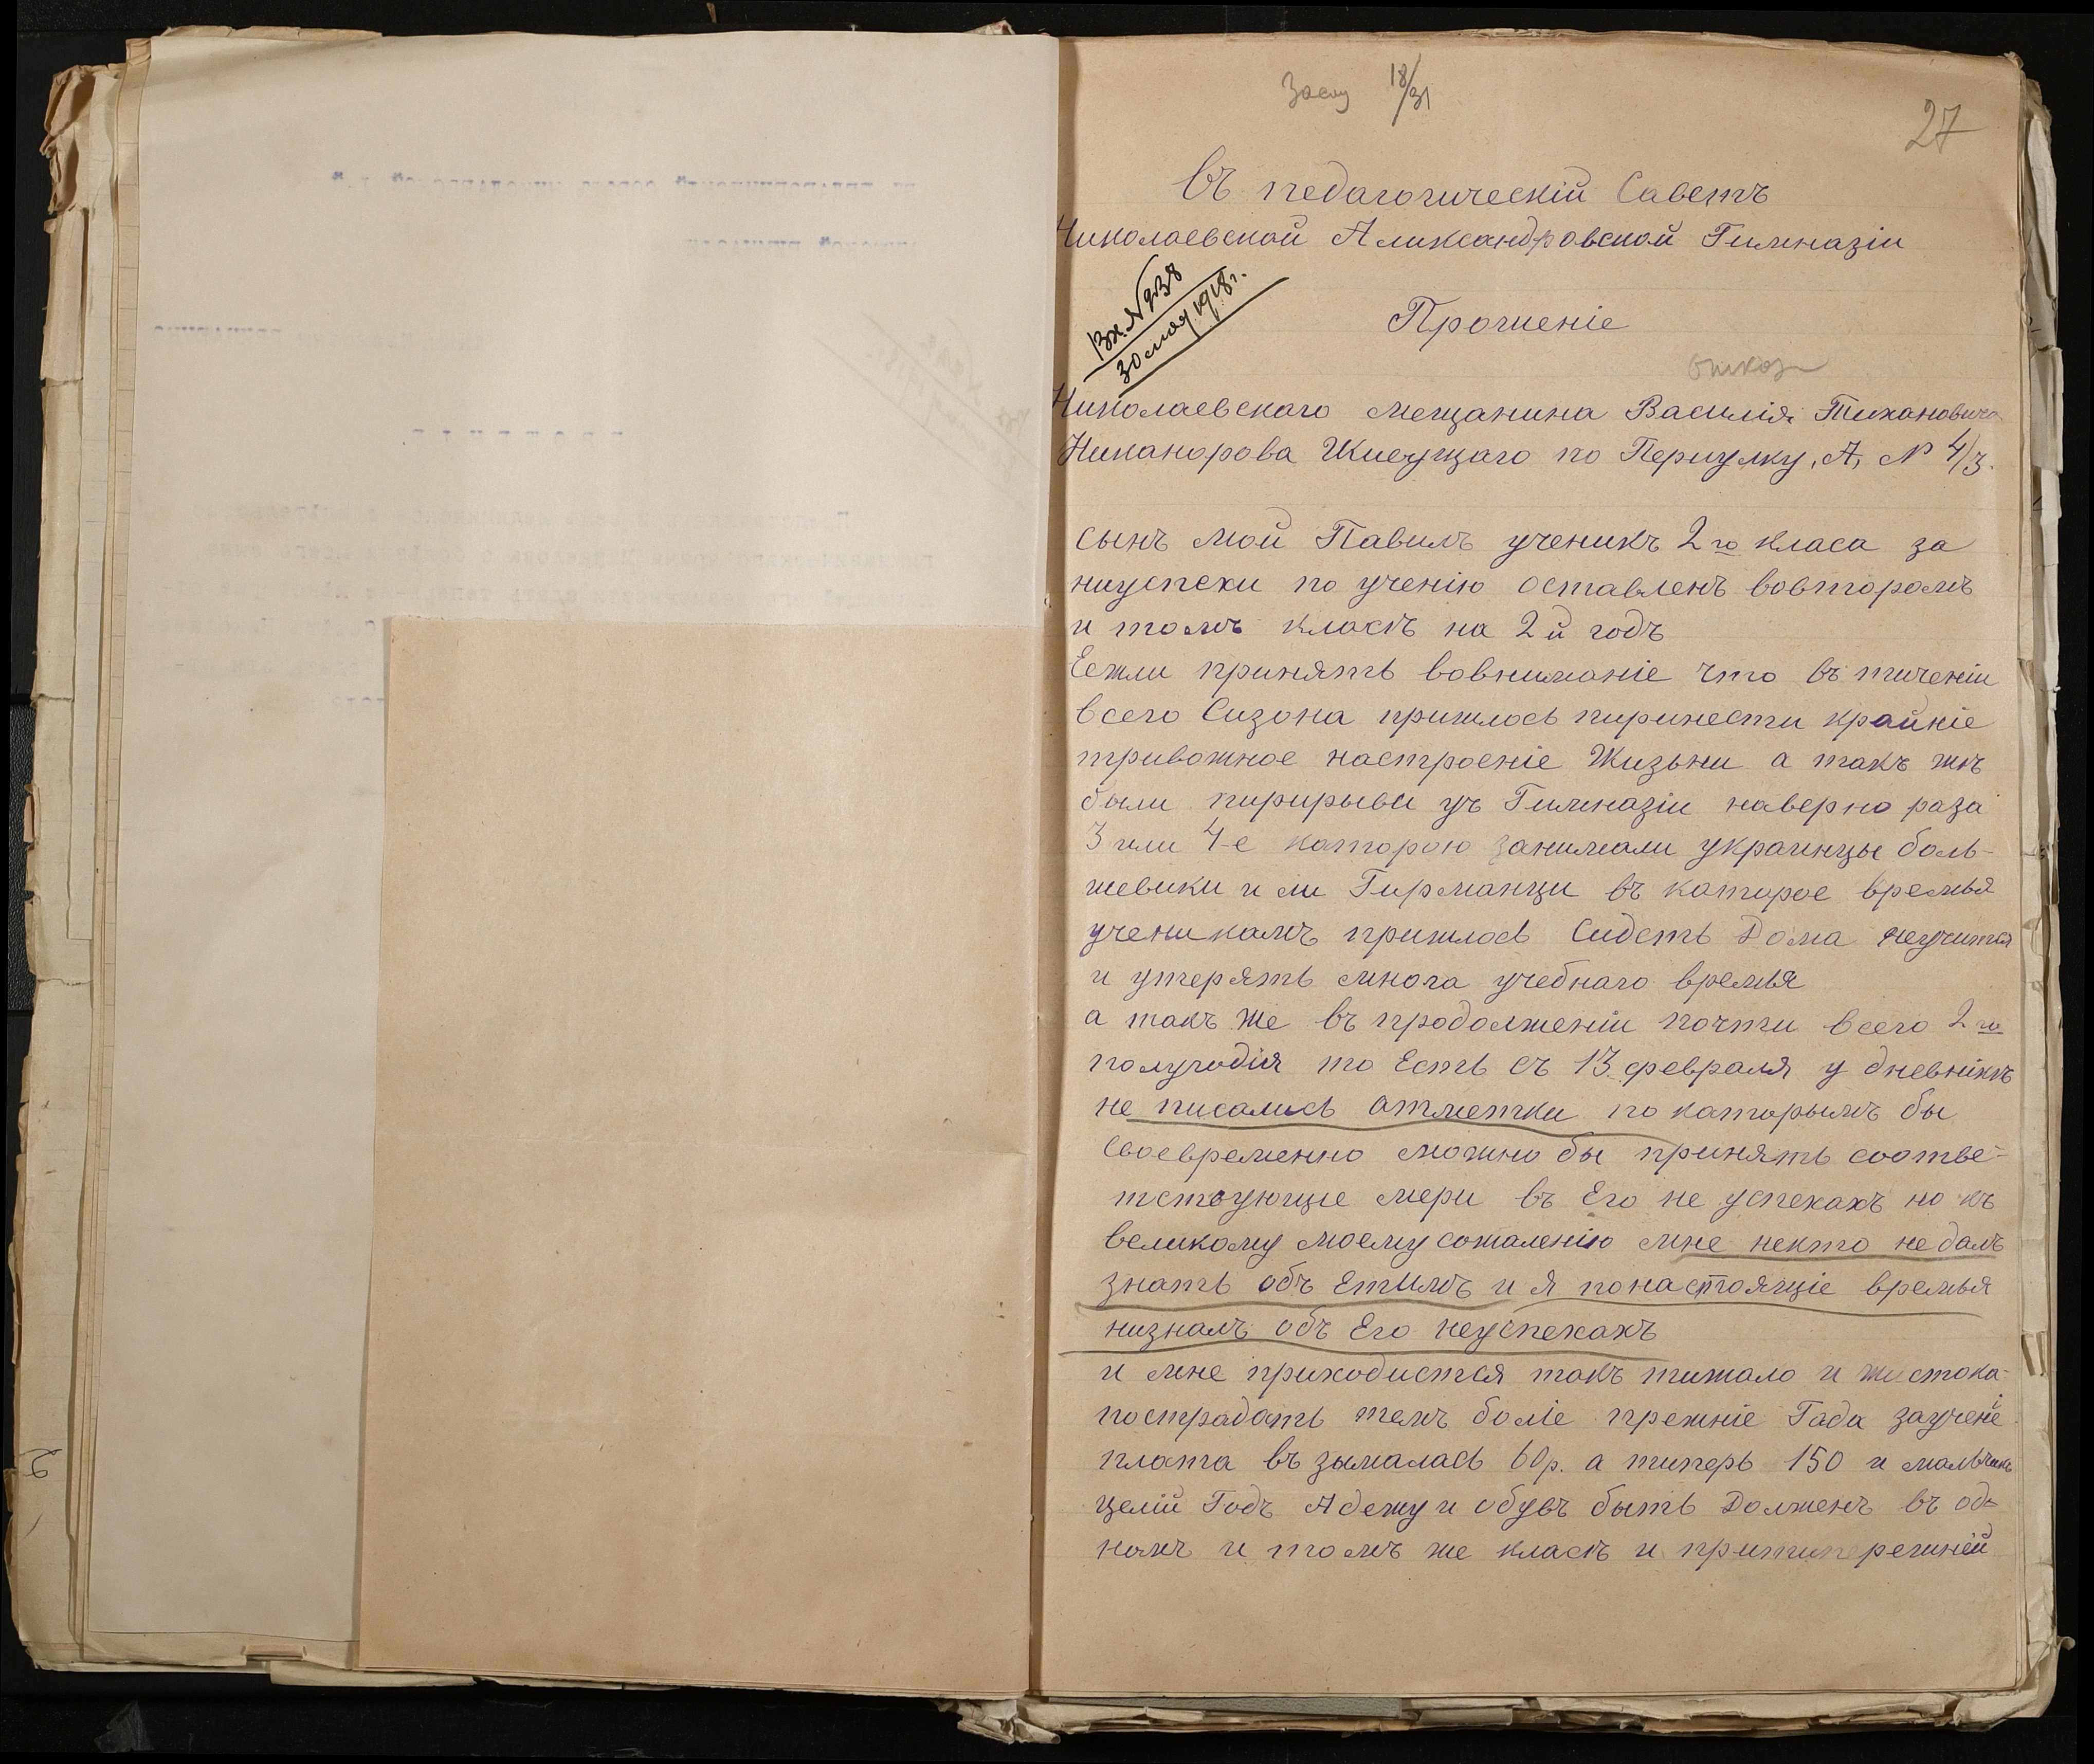 18/31
27
Въ педагогическій Саветъ
Николаевской Аликсандровской Гимназіи
Вх. № 938
30 мая 1918 г.
Прошеніе
отказ
Николаевскаго мещанина Василія Тихановича
Никанорова Живущаго по Періулку, А, № 4/3.
сынъ мой Павилъ ученикъ 2го класа за
ниуспехи по ученію оставленъ вовторомъ
и томъ класъ на 2й годъ
Еежли принять вовниманіе что въ тиченіи
всего Сизона пришлось пиринести крайніе
тривожное настроеніе Жизьни а такъ жъ
были пирирывы уъ Гимназіи наверно раза
3 или 4-е каторою занимали украинцы боль-
шевики и ли Гирманци въ каторое времья
ученикамъ пришлось Сидеть Дома неучится
и утерять многа учебнаго времья
а такъ же въ продолженіи почти всего 2го
полугодія то Есть съ 13 февраля у дневнікъ
не писались атметки по каторымъ бы
Своевременно можно бы принять соотве-
тствующіе мери въ Его не успехахъ но къ
великому моему сожаленію мне некто не далъ
знать объ Етимъ и я понастоящіе времья
низналъ объ Его неуспехахъ
и мне приходистся такъ тижало и жистока-
пострадать темъ боліе прежніе Гада заучене
плата въ зымалась 60р. а типерь 150 и мальчикъ
целій Годъ Адежу и обувъ быть Долженъ въ од-
номъ и томъ же класъ и притиперешней